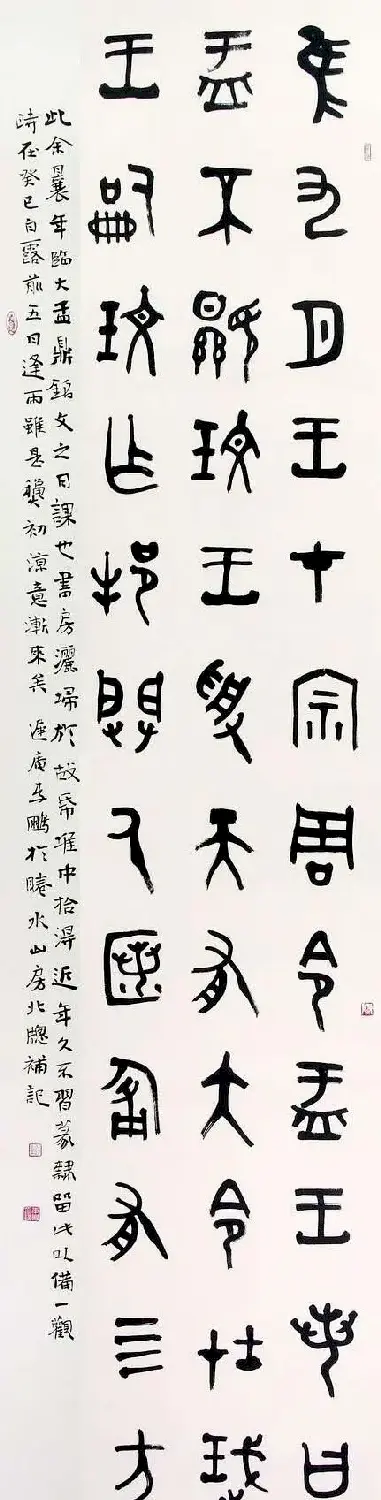 隹九月王才宗周令盂王若曰
盂不顯玟王受天有大令在珷
王嗣玟乍邦闢氒匿匍有亖方
此余曩年臨大盂鼎銘文之日課也書房灑埽於故帋堆中拾得近年久不習篆隸留此以備一觀
時在癸巳白露前五日逢雨雖是初涼意漸來矣庵馬鵬於水山房北牕補記